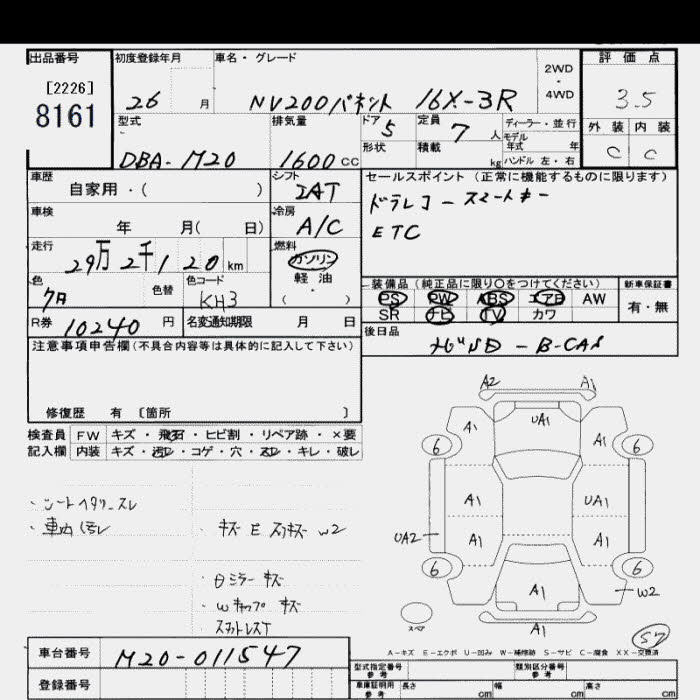 出品番号 初度登録年月 車名・グレード 評価点
[2226] 2WD
8161 26 月 NV200バネット 16X-3R ・4WD 3.5
型式 排気量 ドア 5 定員 7 人 ディーラー・並行 外装 内装
モデル年式 年
DBA-M20 1600 cc 形状 積載 kg ハンドル 左・右 C C
車歴 シフト セールスポイント (正常に機能するものに限ります)
自家用・( ) IAT ドラレコー スマートキー
車検 冷房 ETC
年 月( 日) A/C
走行 燃料
29万2千120 km ガソリン
色 色替 色コード 軽油 装備品 (純正品に限り○をつけてください) 新車保証書
KH3 ( ) PS PW ABS エアB AW 有・無
R券 10240 円 名変通知期限 月 日 SR ナビ TV カワ
注意事項申告欄(不具合内容等は具体的に記入して下さい) 後日品
ナビSD - B-CAS
修復歴 有 〔箇所 〕
検査員 FW キズ・飛石・ヒビ割・リペア跡・×要
記入欄 内装 キズ・汚レ・コゲ・穴・スレ・キレ・破レ
A2 A1
A1 UA1 A1
6 6
・シートヘタリ_スレ A1 UA1
・車内汚レ ・キズ E スリキズ W2 UA2 A1 A1
6 6
・日ミラー キズ A1 W2
・Wキャップ キズ
スペア A1 57
A-キズ E-エクボ U-凹み W-補修跡 S-サビ C-腐食 XX-交換済
車台番号 M20-011547 型式指定番号 参考 類別区分番号 参考
登録番号 車庫証明用 参考 長さ cm 幅 cm 高さ cm